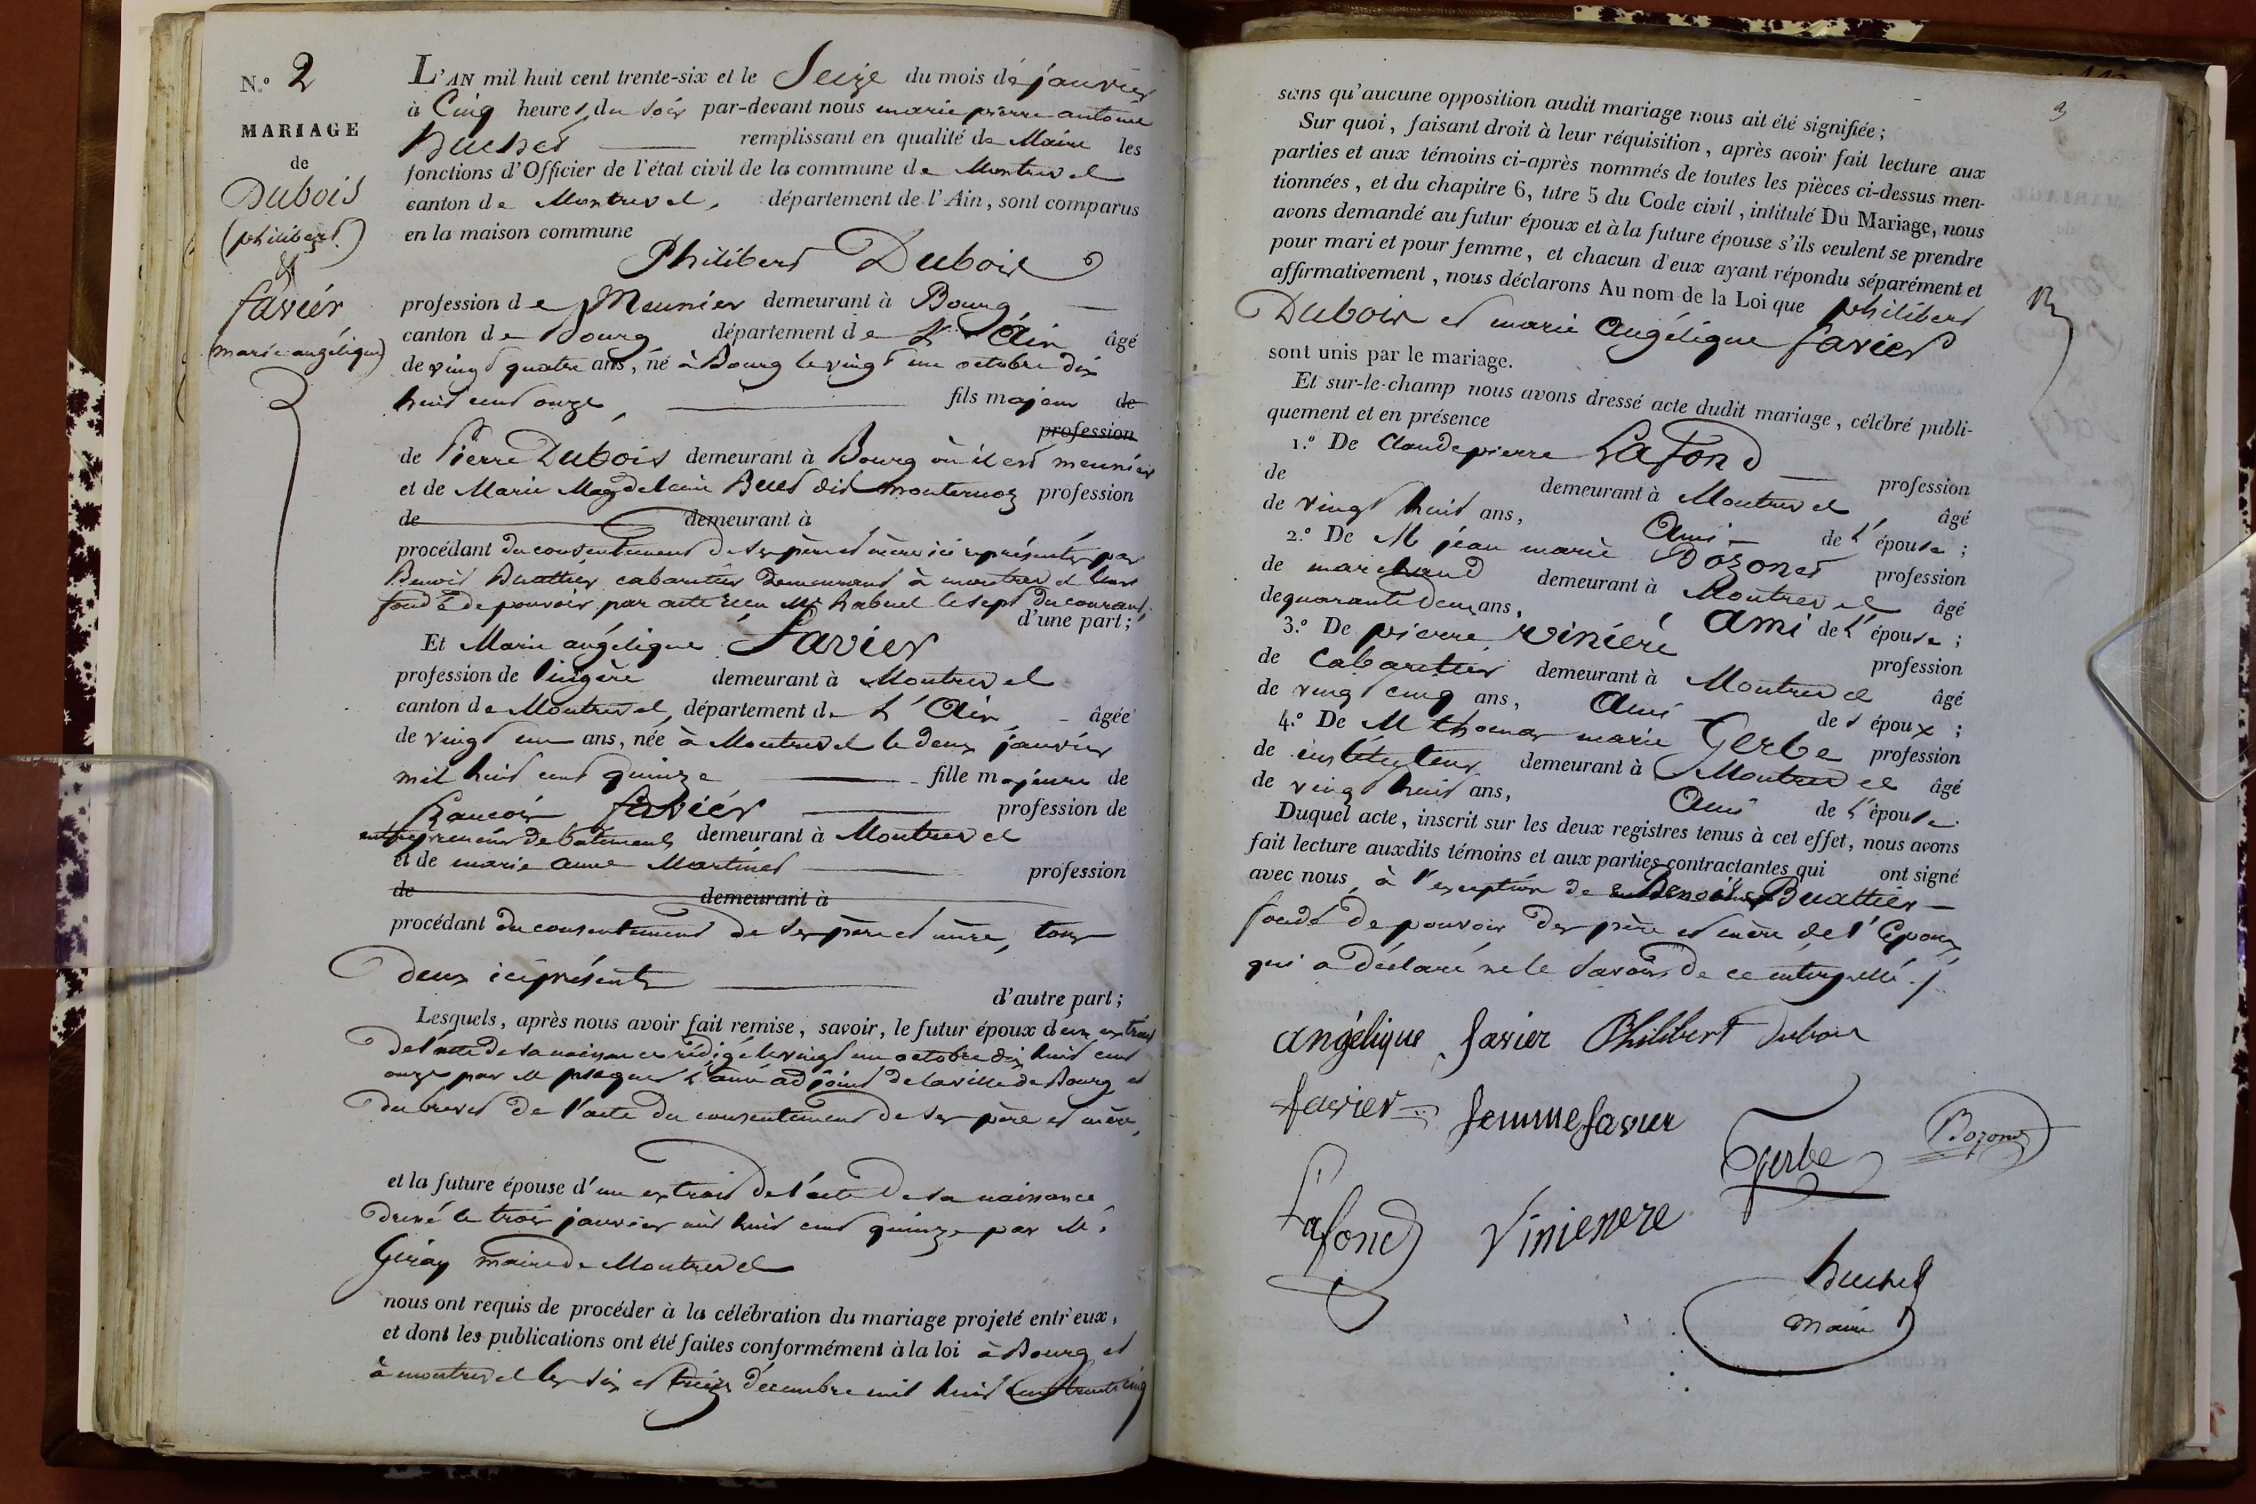 N.° 2
MARIAGE
de
Dubois
(philibert)
&
favier
(marie angélique)
L'AN mil huit cent trente-six et le Seize du mois de janvier
à Cinq heures du soir par-devant nous marie pierre antoine
remplissant en qualité de Maire les
fonctions d'Officier de l'état civil de la commune de Montrevel
canton de Montrevel, département de l'Ain, sont comparus
en la maison commune
Philibert Dubois
profession de Meunier demeurant à Bourg
canton de Bourg département de L'Ain âgé
de vingt quatre ans, né à Bourg le vingt un octobre dix
huit cent onze, fils majeur de
profession
de Pierre Dubois demeurant à Bourg où il est meunier
et de Marie Magdelaine dit profession
de demeurant à
procédant du consentement de ses père et mère ici représentés par
Benoit Buattier cabaretier demeurant à montrevel leur
fondé de pouvoir par acte reçu Me le sept du courant,
d'une part;
Et Marie angélique Favier
profession de lingère demeurant à Montrevel
canton de Montrevel, département de L'Ain, âgée
de vingt un ans, née à Montrevel le deux janvier
mil huit cent quinze fille majeure de
françois favier profession de
entrepreneur de batiments demeurant à Montrevel
et de marie anne Martinet profession
de demeurant à
procédant du consentement de ses père et mère, tous
deux ici présents
d'autre part;
Lesquels, après nous avoir fait remise, savoir, le futur époux d'un extrait
de l'acte de sa naissance rédigé le vingt un octobre dix huit cent
onze par M adjoint de la ville de Bourg et
du brevet de l'acte du consentement de ses père et mère,
et la future épouse d'un extrait de l'acte de sa naissance
dressé le trois janvier mil huit cent quinze par Mr
maire de Montrevel
nous ont requis de procéder à la célébration du mariage projeté entr'eux,
et dont les publications ont été faites conformément à la loi à Bourg et
à montrevel les six et treize décembre mil huit cent trente cinq
3
sans qu'aucune opposition audit mariage nous ait été signifiée;
Sur quoi, faisant droit à leur réquisition, après avoir fait lecture aux
parties et aux témoins ci-après nommés de toutes les pièces ci-dessus men-
tionnées, et du chapitre 6, titre 5 du Code civil, intitulé Du Mariage, nous
avons demandé au futur époux et à la future épouse s'ils veulent se prendre
pour mari et pour femme, et chacun d'eux ayant répondu séparément et
affirmativement, nous déclarons Au nom de la Loi que philibert
Dubois et marie Angélique favier
sont unis par le mariage.
Et sur-le-champ nous avons dressé acte dudit mariage, célébré publi-
quement et en présence
1.° De Claude pierre Lafond profession
de demeurant à Montrevel âgé
de vingt huit ans, Ami de l'épouse;
2.° De M jéan marie Bozonet profession
de marchand demeurant à Montrevel âgé
de quarante deux ans, Ami de l'épouse;
3.° De pierre vinière profession
de Cabaretier demeurant à Montrevel âgé
de vingt cinq ans, Ami de l'époux;
4.° De M thomas marie Gerbe profession
de instituteur demeurant à Montrevel âgé
de vingt huit ans, Ami de l'épouse.
Duquel acte, inscrit sur les deux registres tenus à cet effet, nous avons
fait lecture auxdits témoins et aux parties contractantes qui ont signé
avec nous, à l'exception de Benoit Buattier
fondé de pouvoir des père et mère de l'Epoux
qui a déclaré ne le savoir de ce interpellé./.
angélique favier Philibert dubois
favier femme favier
Gerbe Bozonet
Lafond Vinienere
maire